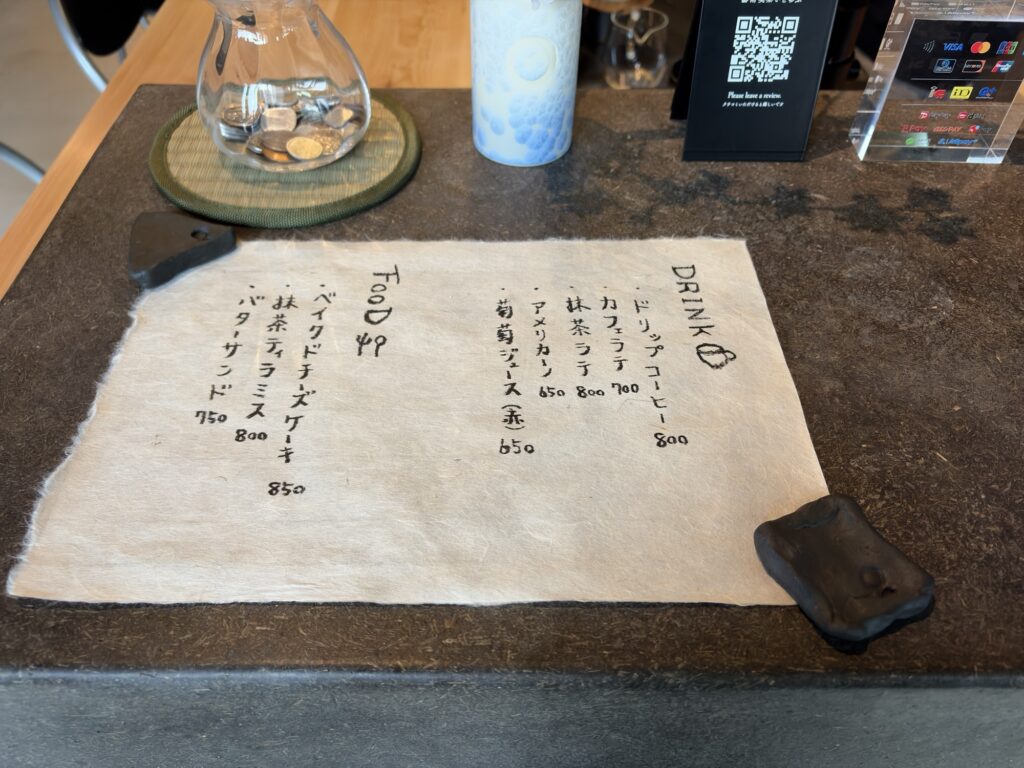 DRINK
・ドリップコーヒー 800
・カフェラテ 700
・抹茶ラテ 800
・アメリカーノ 650
・葡萄ジュース(赤) 650
FOOD
・ベイクドチーズケーキ 850
・抹茶ティラミス 800
・バターサンド 750
Please leave a review.
VISA
iD